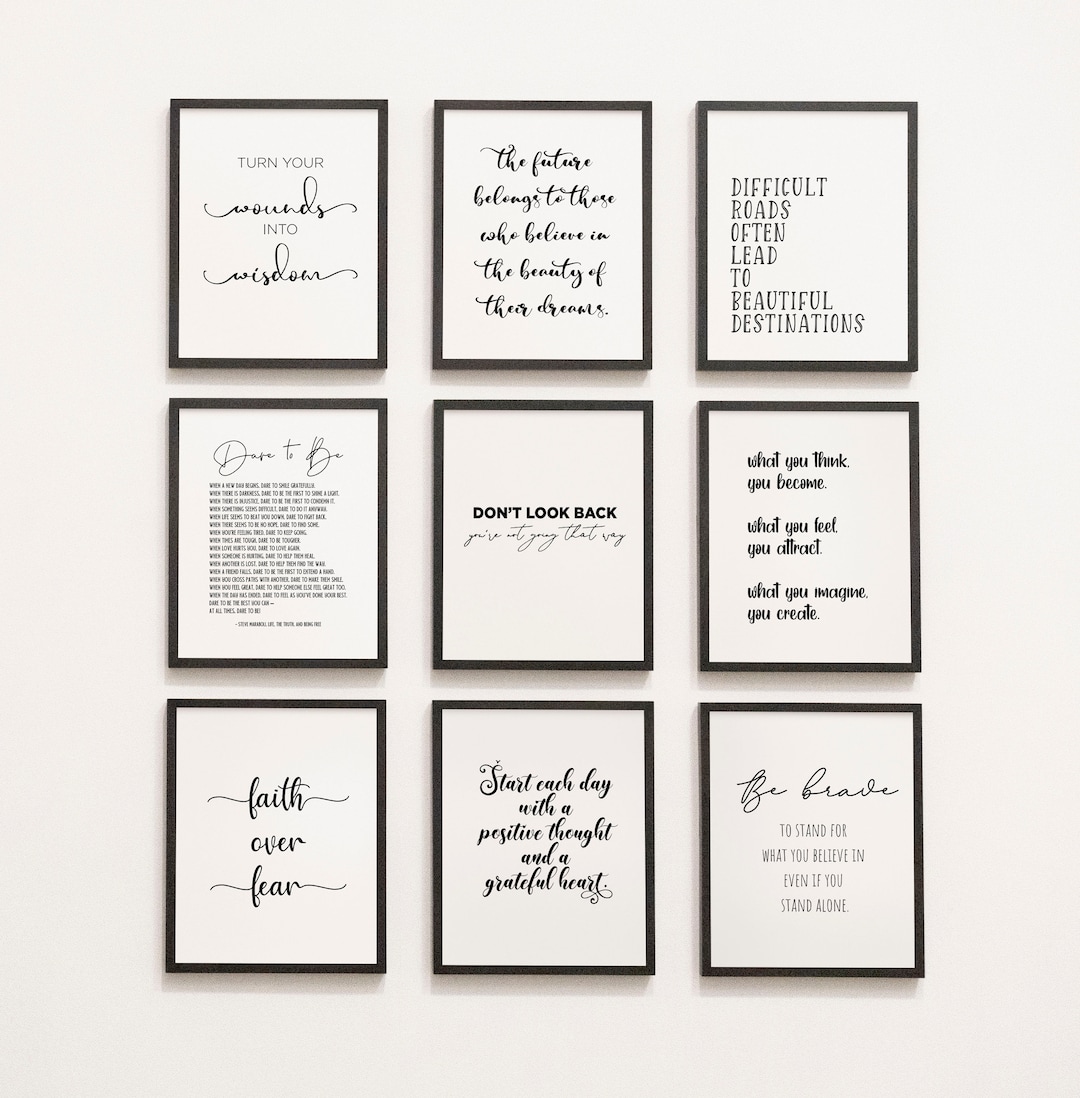 TURN YOUR
wounds
INTO
wisdom
the future
belongs to those
who believe in
the beauty of
their dreams.
DIFFICULT
ROADS
OFTEN
LEAD
TO
BEAUTIFUL
DESTINATIONS
Dare to Be
WHEN A NEW DAY BEGINS, DARE TO SMILE GRATEFULLY.
WHEN THERE IS DARKNESS, DARE TO BE THE FIRST TO SHINE A LIGHT.
WHEN THERE IS INJUSTICE, DARE TO BE THE FIRST TO CONDEMN IT.
WHEN SOMETHING SEEMS DIFFICULT, DARE TO DO IT ANYWAY.
WHEN LIFE SEEMS TO BEAT YOU DOWN, DARE TO FIGHT BACK.
WHEN THERE SEEMS TO BE NO HOPE, DARE TO FIND SOME.
WHEN YOU'RE FEELING TIRED, DARE TO KEEP GOING.
WHEN TIMES ARE TOUGH, DARE TO BE TOUGHER.
WHEN LOVE HURTS YOU, DARE TO LOVE AGAIN.
WHEN SOMEONE IS HURTING, DARE TO HELP THEM HEAL.
WHEN ANOTHER IS LOST, DARE TO HELP THEM FIND THE WAY.
WHEN A FRIEND FALLS, DARE TO BE THE FIRST TO EXTEND A HAND.
WHEN YOU CROSS PATHS WITH ANOTHER, DARE TO MAKE THEM SMILE.
WHEN YOU FEEL GREAT, DARE TO HELP SOMEONE ELSE FEEL GREAT TOO.
WHEN THE DAY HAS ENDED, DARE TO FEEL AS YOU'VE DONE YOUR BEST.
DARE TO BE THE BEST YOU CAN –
AT ALL TIMES, DARE TO BE!
- STEVE MARABOLI, LIFE, THE TRUTH, AND BEING FREE
DON'T LOOK BACK
you're not going that way
what you think,
you become.
what you feel,
you attract.
what you imagine,
you create.
faith
over
fear
Start each day
with a
positive thought
and a
grateful heart.
Be brave
TO STAND FOR
WHAT YOU BELIEVE IN
EVEN IF YOU
STAND ALONE.